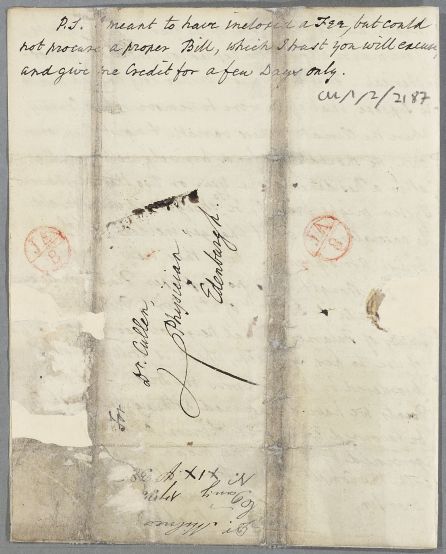 P.S. I meant to have inclosed a Fee, but could
not procure a proper Bill, which I trust you will excuse,
and give me Credit for a few Days only.
CUL/1/2/2187
JA
8
JA
8
For
Dr. Cullen,
Physician
Edenburgh.
Dr.
N. XIX